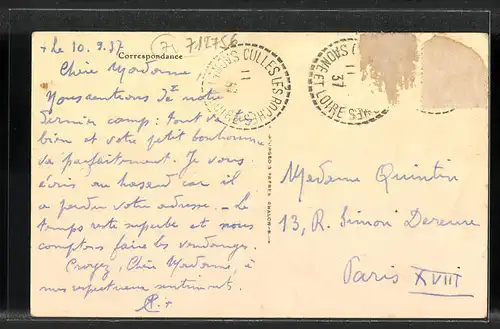 + Le 10.9.37
71
712756
Correspondance
Chère Madame
Nous rentrons de notre
dernier camp : tout va
bien et votre petit bonhomme
va parfaitement. Je vous
écris au hasard car il
a perdu votre adresse. - Le
temps reste superbe et nous
comptons faire les vendanges.
Croyez, Chère Madame, à
mes respectueux sentiments.
CULLES LES ROCHES
11
37
SAONE ET LOIRE
11
37
Madame Quintin
13, R. Simon Dereure
Paris XVIII